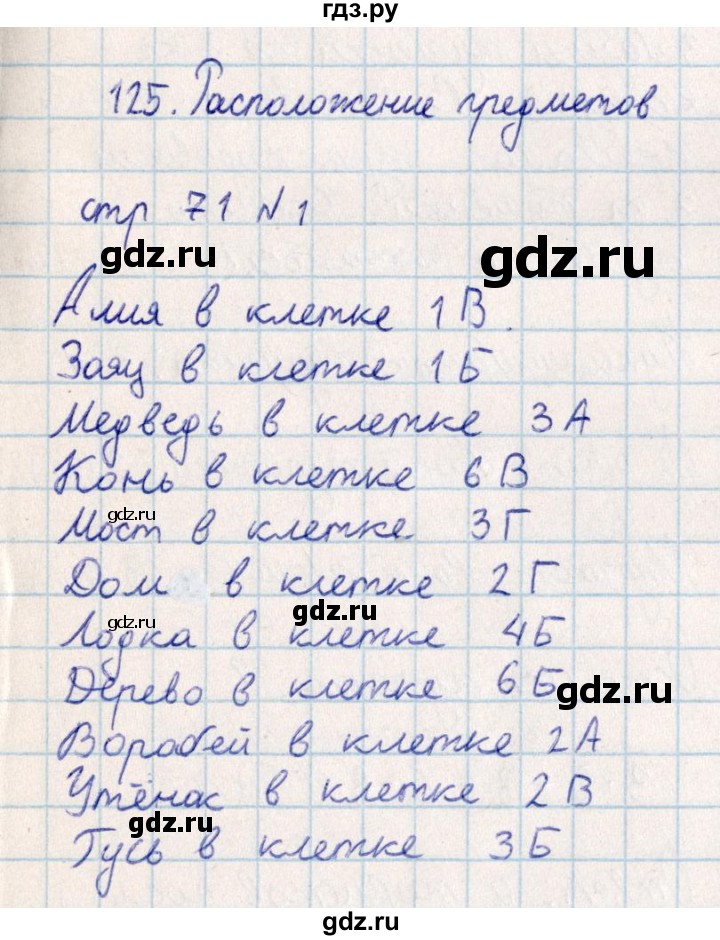 гдз.ру
125. Расположение предметов
стр 71 № 1
gdz.ru
gdz.ru
Алия в клетке 1В.
Заяц в клетке 1Б
Медведь в клетке 3А
Конь в клетке 6В
gdz.ru
gdz.ru
Мост в клетке 3Г
Дом в клетке 2Г
gdz.ru
gdz.ru
Лодка в клетке 4Б
Дерево в клетке 6Б
gdz.ru
Воробей в клетке 2А
Утёнок в клетке 2В
gdz.ru
gdz.ru
Гусь в клетке 3Б
gdz.ru